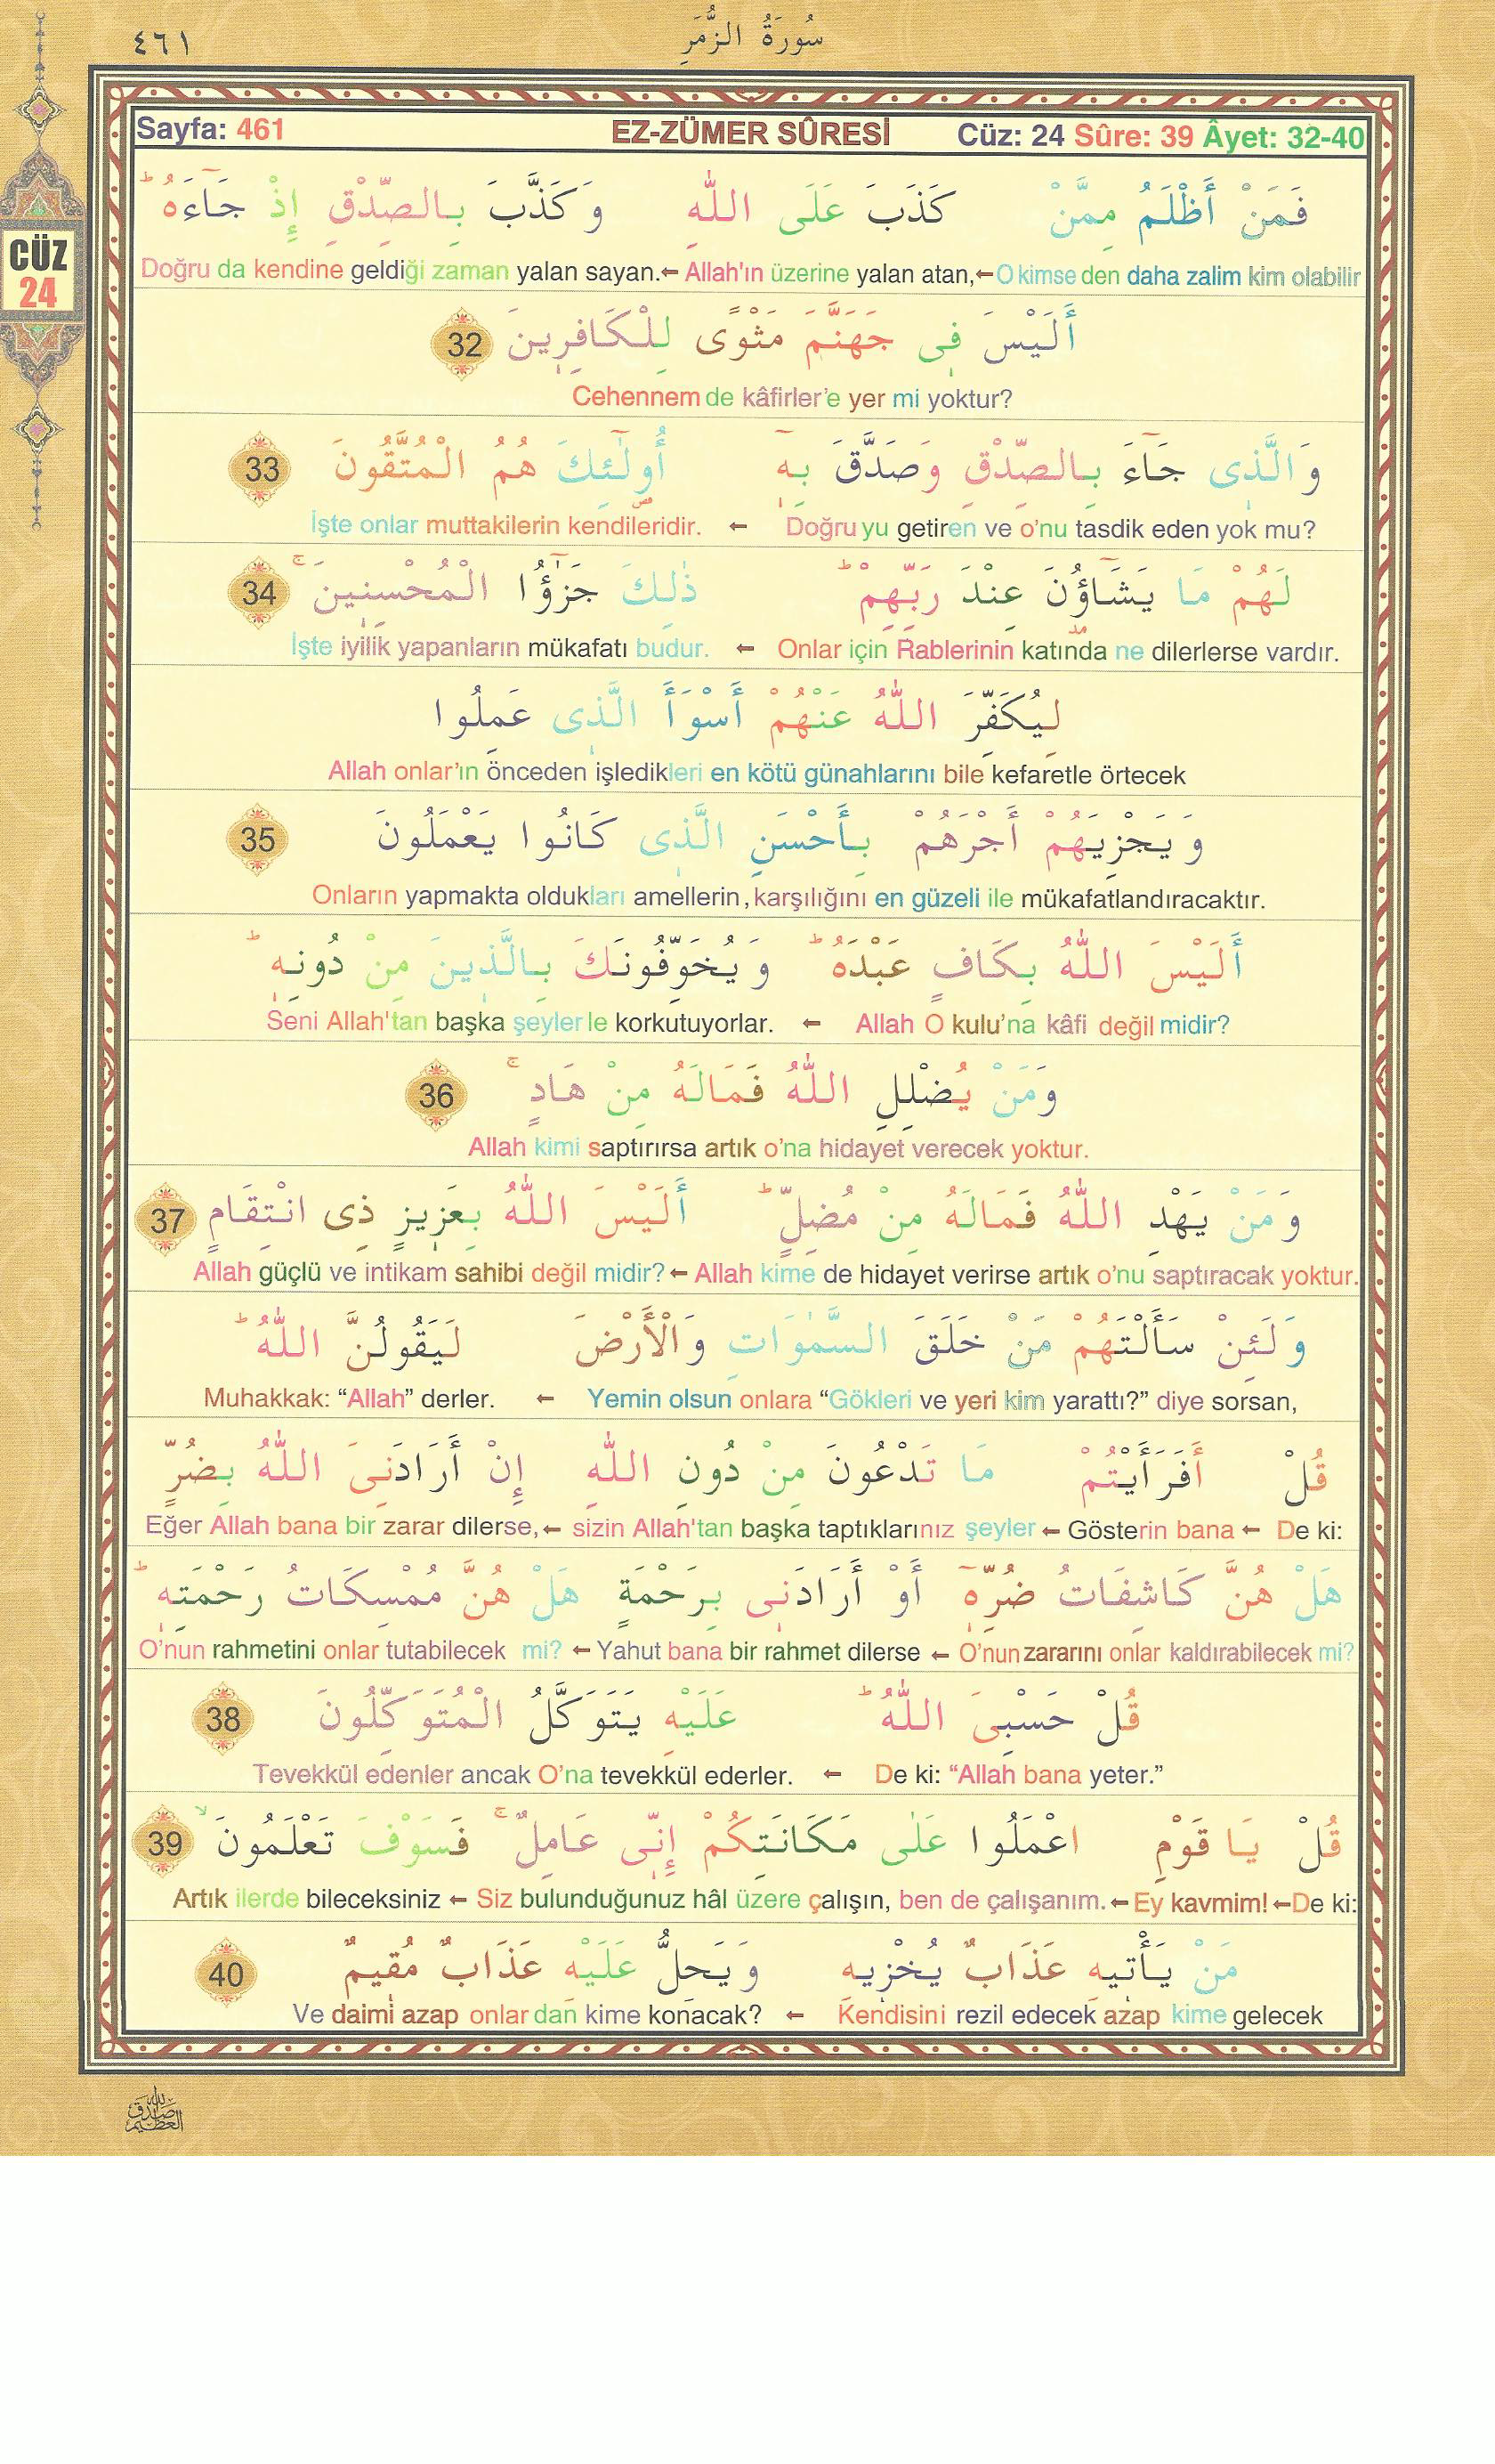 سُورَةُ الزُّمَرِ
٤٦١
Sayfa: 461 EZ-ZÜMER SÛRESİ Cüz: 24 Sûre: 39 Âyet: 32-40
CÜZ
24
فَمَنْ أَظْلَمُ مِمَّنْ كَذَبَ عَلَى اللّٰهِ وَكَذَّبَ بِالصِّدْقِ إِذْ جَٓاءَهُ ط
Doğru da kendine geldiği zaman yalan sayan.← Allah'ın üzerine yalan atan,←O kimse den daha zalim kim olabilir
أَلَيْسَ فِى جَهَنَّمَ مَثْوًى لِلْكَافِرِينَ 32
Cehennem de kâfirler'e yer mi yoktur?
وَالَّذِى جَٓاءَ بِالصِّدْقِ وَصَدَّقَ بِهِٓ أُولٰٓئِكَ هُمُ الْمُتَّقُونَ 33
İşte onlar muttakilerin kendileridir. ← Doğru yu getiren ve o'nu tasdik eden yok mu?
لَهُمْ مَا يَشَٓاؤُنَ عِنْدَ رَبِّهِمْ ط ذٰلِكَ جَزٰٓؤُا الْمُحْسِنِينَ ج 34
İşte iyilik yapanların mükafatı budur. ← Onlar için Rablerinin katında ne dilerlerse vardır.
لِيُكَفِّرَ اللّٰهُ عَنْهُمْ أَسْوَأَ الَّذِى عَمِلُوا
Allah onlar'ın önceden işledikleri en kötü günahlarını bile kefaretle örtecek
وَيَجْزِيَهُمْ أَجْرَهُمْ بِأَحْسَنِ الَّذِى كَانُوا يَعْمَلُونَ 35
Onların yapmakta oldukları amellerin, karşılığını en güzeli ile mükafatlandıracaktır.
أَلَيْسَ اللّٰهُ بِكَافٍ عَبْدَهُ ط وَيُخَوِّفُونَكَ بِالَّذِينَ مِنْ دُونِهِ ط
Seni Allah'tan başka şeyler le korkutuyorlar. ← Allah O kulu'na kâfi değil midir?
وَمَنْ يُضْلِلِ اللّٰهُ فَمَالَهُ مِنْ هَادٍ ج 36
Allah kimi saptırırsa artık o'na hidayet verecek yoktur.
وَمَنْ يَهْدِ اللّٰهُ فَمَالَهُ مِنْ مُضِلٍّ ط أَلَيْسَ اللّٰهُ بِعَزِيزٍ ذِى انْتِقَامٍ 37
Allah güçlü ve intikam sahibi değil midir?← Allah kime de hidayet verirse artık o'nu saptıracak yoktur.
وَلَئِنْ سَأَلْتَهُمْ مَنْ خَلَقَ السَّمٰوَاتِ وَالْأَرْضَ لَيَقُولُنَّ اللّٰهُ ط
Muhakkak: “Allah” derler. ← Yemin olsun onlara “Gökleri ve yeri kim yarattı?” diye sorsan,
قُلْ أَفَرَأَيْتُمْ مَا تَدْعُونَ مِنْ دُونِ اللّٰهِ إِنْ أَرَادَنِىَ اللّٰهُ بِضُرٍّ
Eğer Allah bana bir zarar dilerse,← sizin Allah'tan başka taptıklarınız şeyler ← Gösterin bana ← De ki:
هَلْ هُنَّ كَاشِفَاتُ ضُرِّهِٓ أَوْ أَرَادَنِى بِرَحْمَةٍ هَلْ هُنَّ مُمْسِكَاتُ رَحْمَتِهِ ط
O'nun rahmetini onlar tutabilecek mi? ← Yahut bana bir rahmet dilerse ← O'nun zararını onlar kaldırabilecek mi?
قُلْ حَسْبِىَ اللّٰهُ ط عَلَيْهِ يَتَوَكَّلُ الْمُتَوَكِّلُونَ 38
Tevekkül edenler ancak O'na tevekkül ederler. ← De ki: “Allah bana yeter.”
قُلْ يَا قَوْمِ اعْمَلُوا عَلٰى مَكَانَتِكُمْ إِنِّى عَامِلٌ ج فَسَوْفَ تَعْلَمُونَ لا 39
Artık ilerde bileceksiniz ← Siz bulunduğunuz hâl üzere çalışın, ben de çalışanım.←Ey kavmim!←De ki:
مَنْ يَأْتِيهِ عَذَابٌ يُخْزِيهِ وَيَحِلُّ عَلَيْهِ عَذَابٌ مُقِيمٌ 40
Ve daimi azap onlar dan kime konacak? ← Kendisini rezil edecek azap kime gelecek
صدق الله العظيم